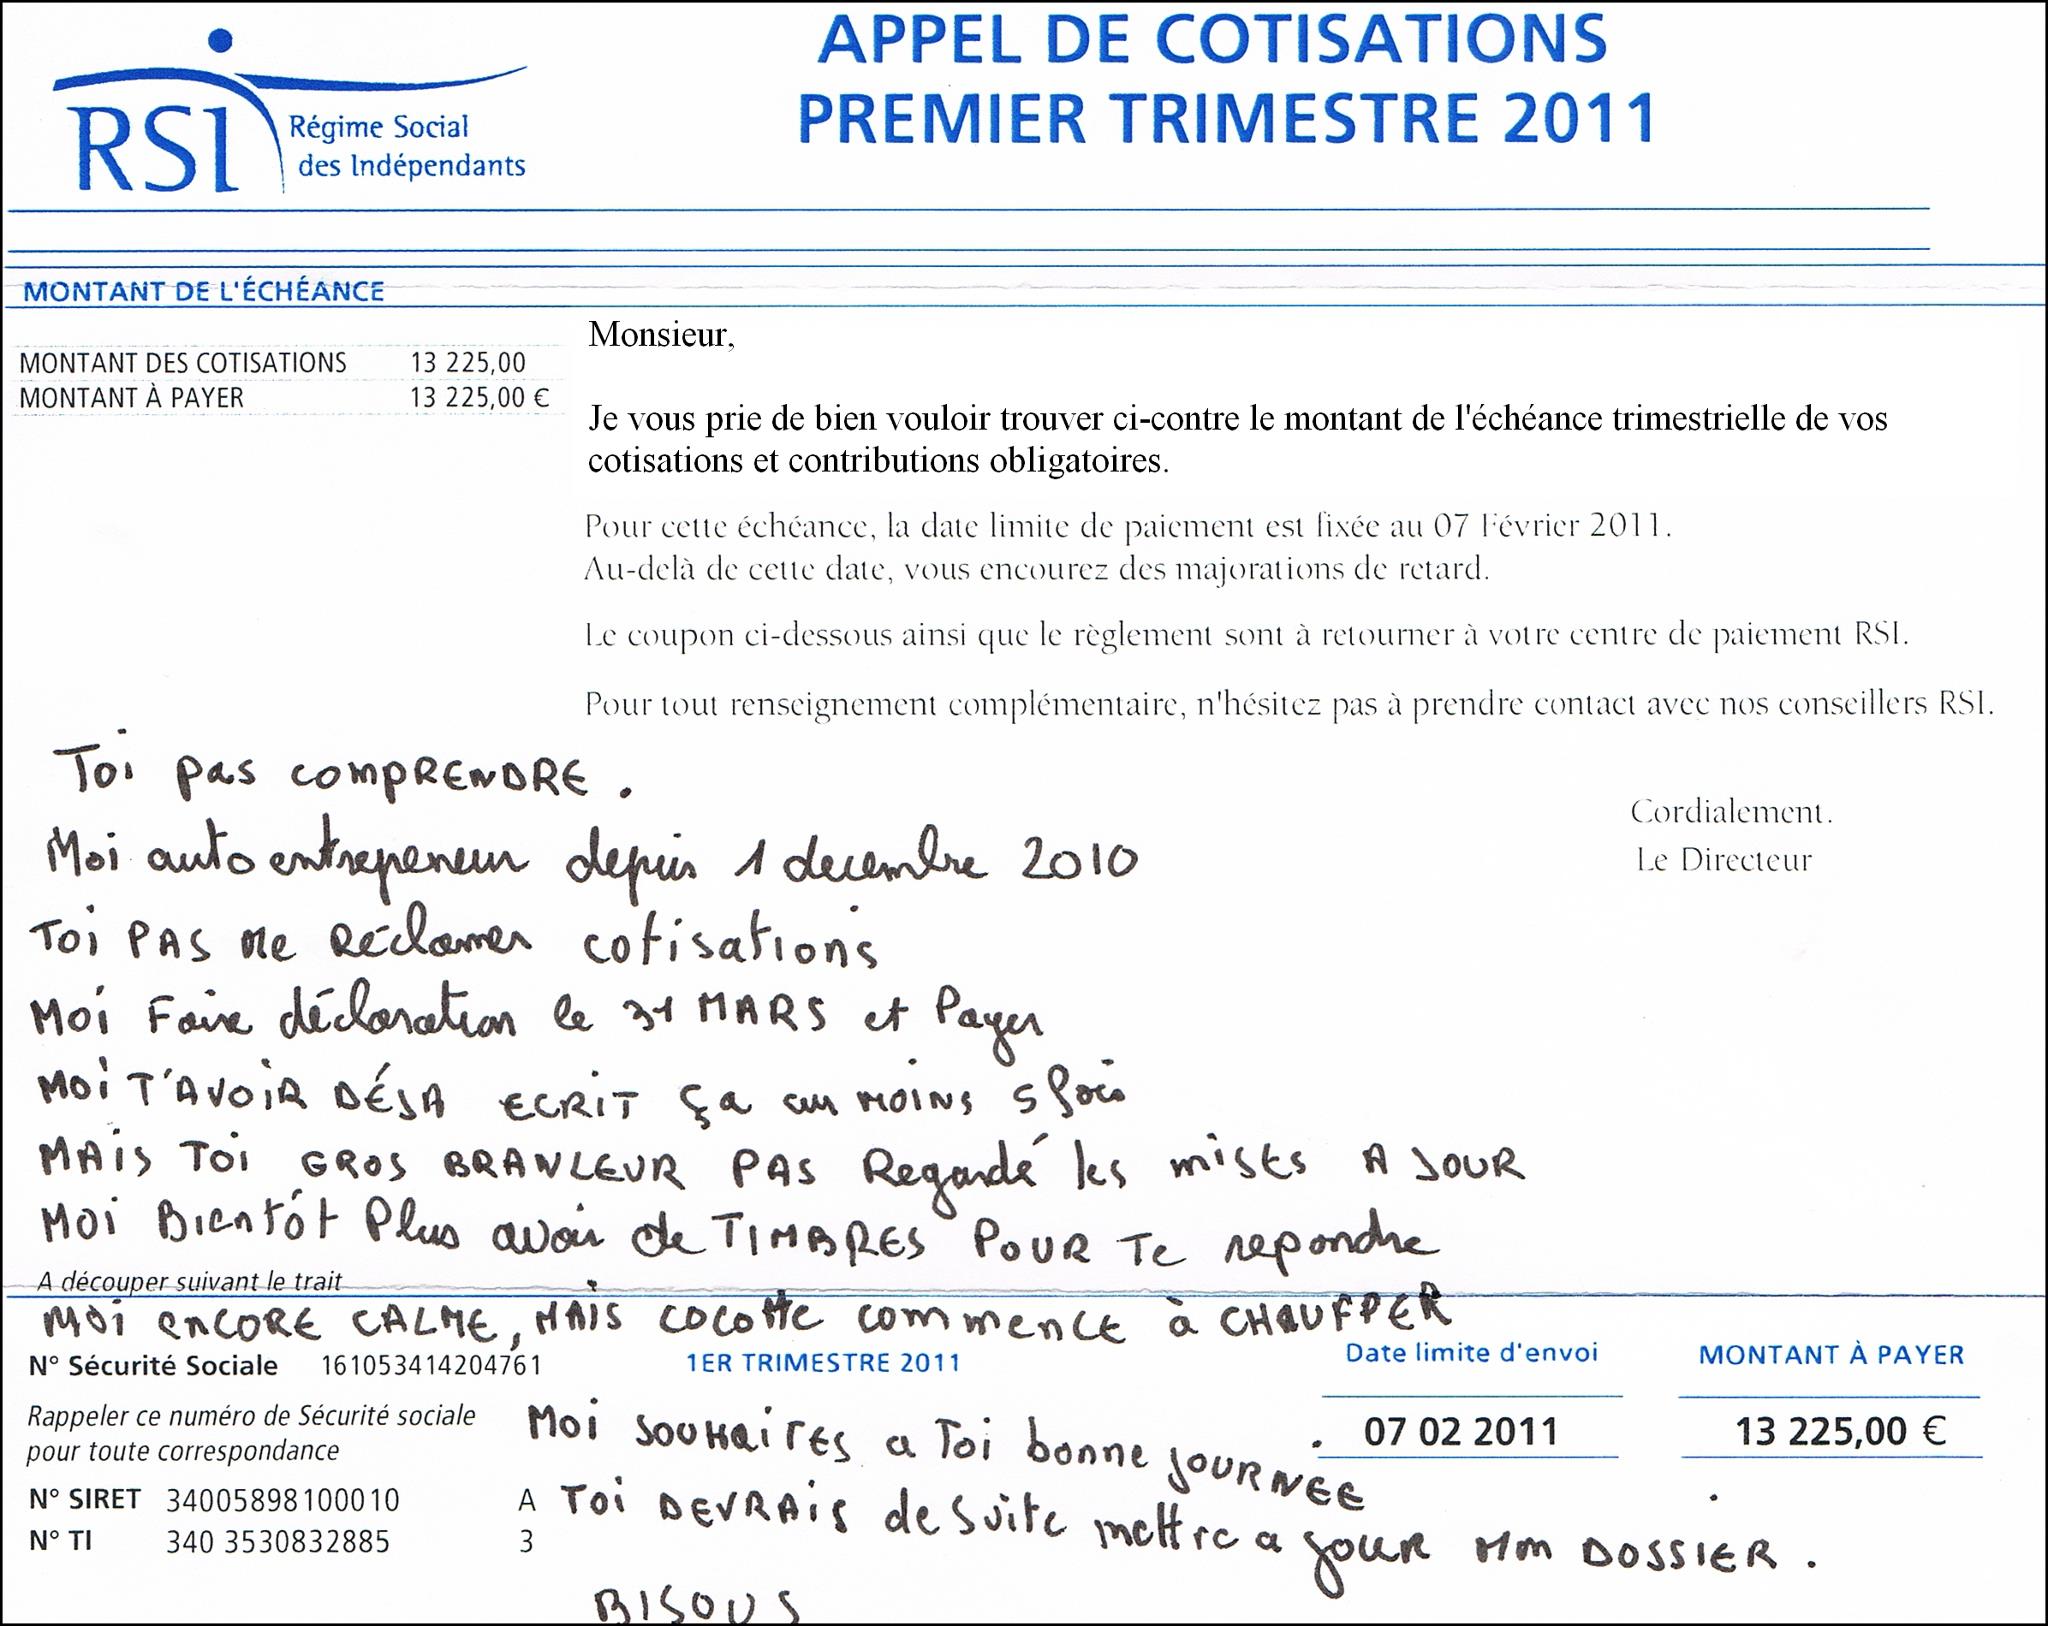 RSI Régime Social
des Indépendants
APPEL DE COTISATIONS
PREMIER TRIMESTRE 2011
MONTANT DE L'ÉCHÉANCE
MONTANT DES COTISATIONS 13 225,00
MONTANT À PAYER 13 225,00 €
Monsieur,
Je vous prie de bien vouloir trouver ci-contre le montant de l'échéance trimestrielle de vos
cotisations et contributions obligatoires.
Pour cette échéance, la date limite de paiement est fixée au 07 Février 2011.
Au-delà de cette date, vous encourez des majorations de retard.
Le coupon ci-dessous ainsi que le règlement sont à retourner à votre centre de paiement RSI.
Pour tout renseignement complémentaire, n'hésitez pas à prendre contact avec nos conseillers RSI.
Cordialement.
Le Directeur
Toi pas comPRENDRE.
Moi auto entrepeneur depuis 1 decembre 2010
Toi PAS me Réclamer cotisations
Moi Faire déclaration le 31 MARS et Payer
Moi T'AVOIR DÉJA ECRIT ça au MOINS 5 fois
MAIS Toi GROS BRANLEUR PAS Regardé les mises A JOUR
Moi Bientôt Plus avoir de TIMBRES POUR Te repondre
A découper suivant le trait
Moi enCORE CALME, MAIS COCOtte commence à CHAUFFER
N° Sécurité Sociale 161053414204761
1ER TRIMESTRE 2011
Date limite d'envoi
MONTANT À PAYER
Rappeler ce numéro de Sécurité sociale
pour toute correspondance
07 02 2011
13 225,00 €
Moi SOUHAITES a Toi bonne JOURNEE
N° SIRET 34005898100010 A
N° TI 340 3530832885 3
Toi DEVRAIS de Suite mettre a jour DOSSIER.
BISOUS